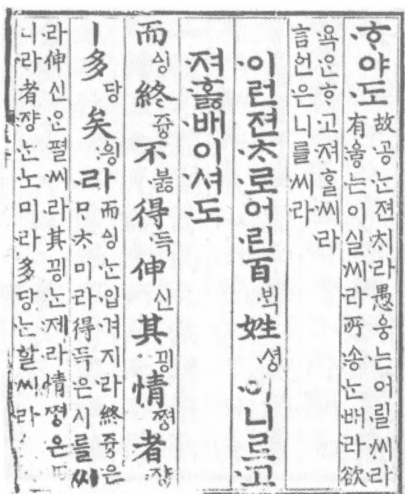 ᄒᆞ야도
故공ᄂᆞᆫ젼ᄎᆡ라愚ᅌᅮᆼ는어릴씨라
有ᅌᅮᇢ는이실씨라所송ᄂᆞᆫ배라欲
욕은ᄒᆞ고져ᄒᆞᆯ씨라
言언은니를씨라
이런젼ᄎᆞ로어린百ᄇᆡᆨ姓셔ᇰ이니르고
져홇배이셔도
而ᅀᅵᆼ終쥬ᇰ不부ᇙ得득伸신其끵情쪄ᇰ者쟝
ㅣ多당矣ᅌᅴᆼ라
而ᅀᅵᆼᄂᆞᆫ입겨지라終쥬ᇰ은
ᄆᆞᄎᆞ미라得득은시를씨
라伸신은펼씨라其끵ᄂᆞᆫ제라情쪄ᇰ은
라者쟝ᄂᆞᆫ노미라多당ᄂᆞᆫ할씨라